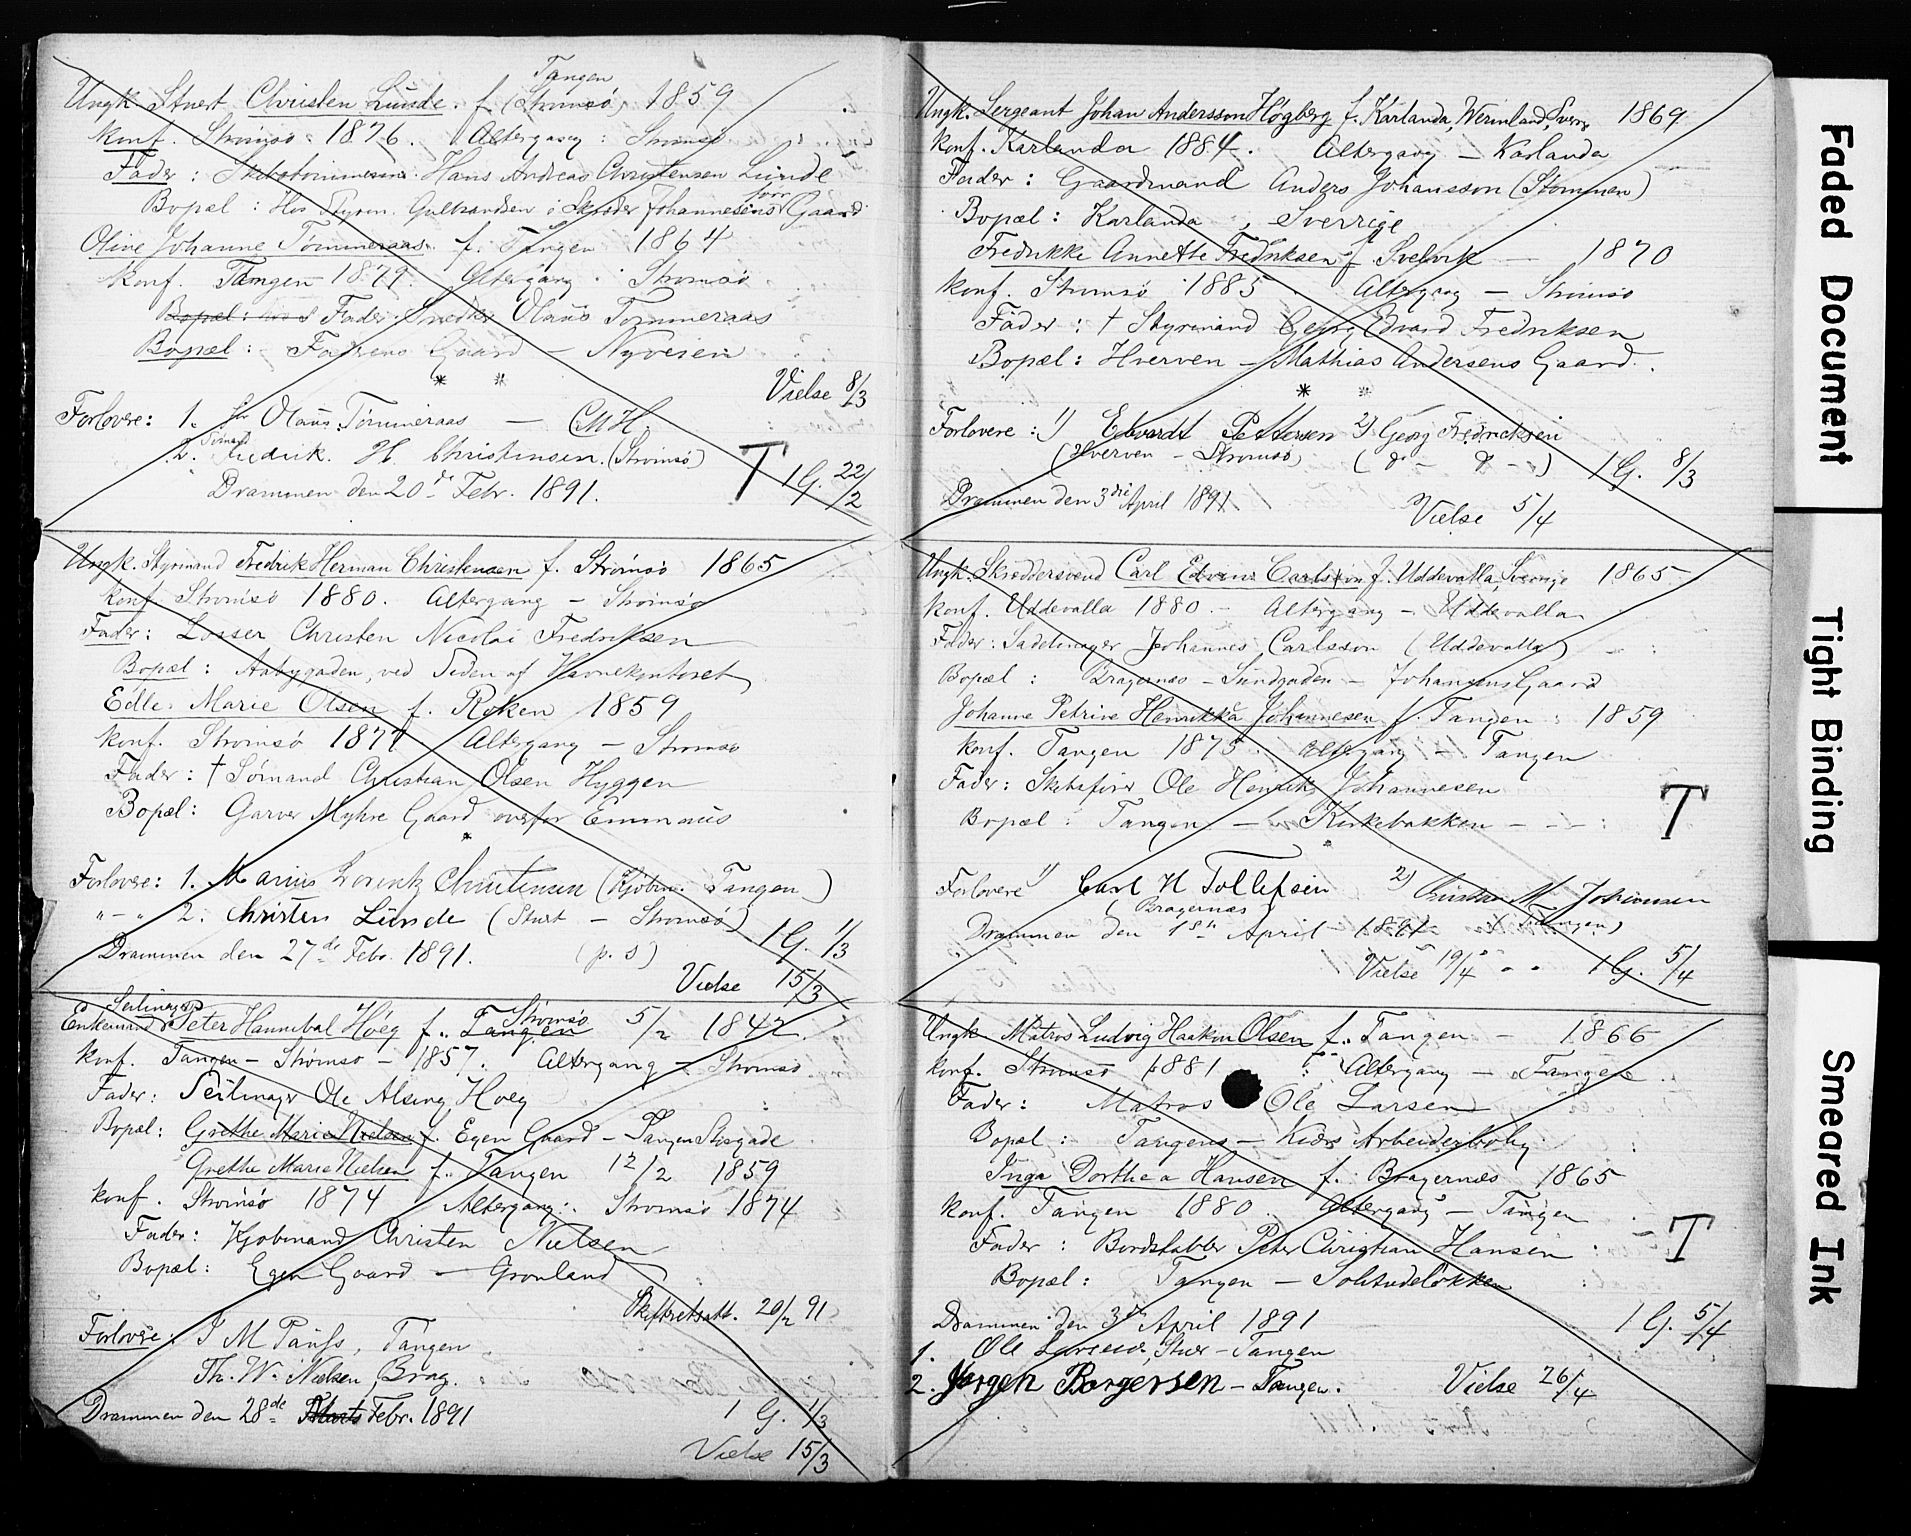 Tangen
Ungk. Stuert Christen Lunde. f. (Strømsø) 1859
konf. Strømsø 1876. Altergang: Strømsø
Fader: Hans Andreas Christensen Lunde
Bopæl: Hos Styrm. Gulbrandsen i Skræder Johannesens Gaard
Olive Johanne Tømmeraas f. Tangen 1864
konf. Tangen 1879. Altergang: Strømsø
Bopæl: Fader: Snedker Olaus Tømmeraas
Bopæl: Faderens Gaard – Nyveien
* *
Vielse 8/3
Forlovere: 1. Olaus Tømmeraas – CMH.
2. Fredrik. H. Christensen. (Strømsø)
T 1 G. 22/2
Drammen den 20de Febr. 1891.
Ungk. Styrmand Fredrik Herman Christensen f. Strømsø 1865
konf. Strømsø 1880. Altergang – Strømsø
Fader: Losser Christen Nicolai Fredriksen
Bopæl: Aabygaden, ved Siden af Havnekontoret
Edle Marie Olsen f. Røken 1859
konf. Strømsø 1874 Altergang – Strømsø
Fader: † Sømand Christian Olsen Hyggen
Bopæl: Garver Myhre Gaard overfor Emmaus
*
Forlovere: 1. Marius Lorentz Christensen (Kjøbm. Tangen)
" – " 2. Christen Lunde (Stuert – Strømsø)
1 G. 1/3
Drammen den 27de Febr. 1891. (p. s)
Vielse 15/3
Seilmager
Strømsø
Enkemand Peter Hannibal Høeg f. Tangen 5/2 1842.
konf. Tangen – Strømsø – 1857. Altergang – Strømsø
Fader: Seilmager Ole Alsing Høeg
Bopæl: Grethe Marie Nielsen f. Egen Gaard – Tangen Storgade
Grethe Marie Nielsen f. Tangen 12/2 1859
konf. Strømsø 1874 Altergang: Strømsø 1874
Fader: Kjøbmand Christen Nielsen
Bopæl: Egen Gaard – Grønland
Skifteretsatt. 20/2 91
Forlovere: J M Pauss, Tangen
Th. W. Nielsen Brag.
Drammen den 28de Marts Febr. 1891
1 G. 1/3
Vielse 15/3
Ungk. Sergeant Johan Andersson Høgberg f. Karlanda, Wermland, Sverg 1869
konf. Karlanda 1884. Altergang – Karlanda
Fader: Gaardmand Anders Johansson (Stommen)
Bopæl: Karlanda, Sverrige
Fredrikke Annette Fredriksen f. Svelvik – 1870
konf. Strømsø 1885 Altergang – Strømsø
Fader: † Styrmand Georg Edvard Fredriksen
Bopæl: Hverven – Mathias Andersens Gaard.
* *
Forlovere: 1) Edvardt Pettersen 2) Georg Fredriksen
(Hverven – Strømsø) (do – do –)
1 G. 8/3
Drammen den 3die April 1891
Vielse 5/4
Ungk. Skræddersvend Carl Edvin Carlsson f. Uddevalla, Sverige 1865
konf. Uddevalla 1880. – Altergang – Uddevalla
Fader: Sadelmager Johannes Carlsson (Uddevalla)
Bopæl: Bragernæs – Sundgaden – Johansens Gaard
Johanne Petrine Henrikka Johannesen f. Tangen: 1859
konf. Tangen 1875 Altergang – Tangen
Fader: Skibsfører Ole Henrik Johannesen
T
Bopæl: Tangen – Kirkebakken – – :
*
Forlovere 1) Carl H Tollefsen 2) Christian M. Johannsen
(Bragernæs) (Tangen)
Drammen den 18de April 1891
Vielse 19/4 1 G. 5/4
Ungk Matros Ludvig Haakon Olsen f. Tangen – 1866
konf. Strømsø 1881 : Altergang – Tangen
Fader: Matros Ole Larsen
Bopæl: Tangens – Kiørs Arbeiderbolig
Inga Dorthea Hansen f. Bragernæs 1865
konf. Tangen 1880 Altergang – Tangen
Fader: Bordstabler Peter Christian Hansen
T
Bopæl: Tangen – Solitudeløkken
Drammen den 3die April 1891
1 G. 5/4
1. Ole Larsen, Stuer – Tangen
2. Jørgen Borgersen – Tangen.
Vielse 26/4
Faded Document
Tight Binding
Smeared Ink